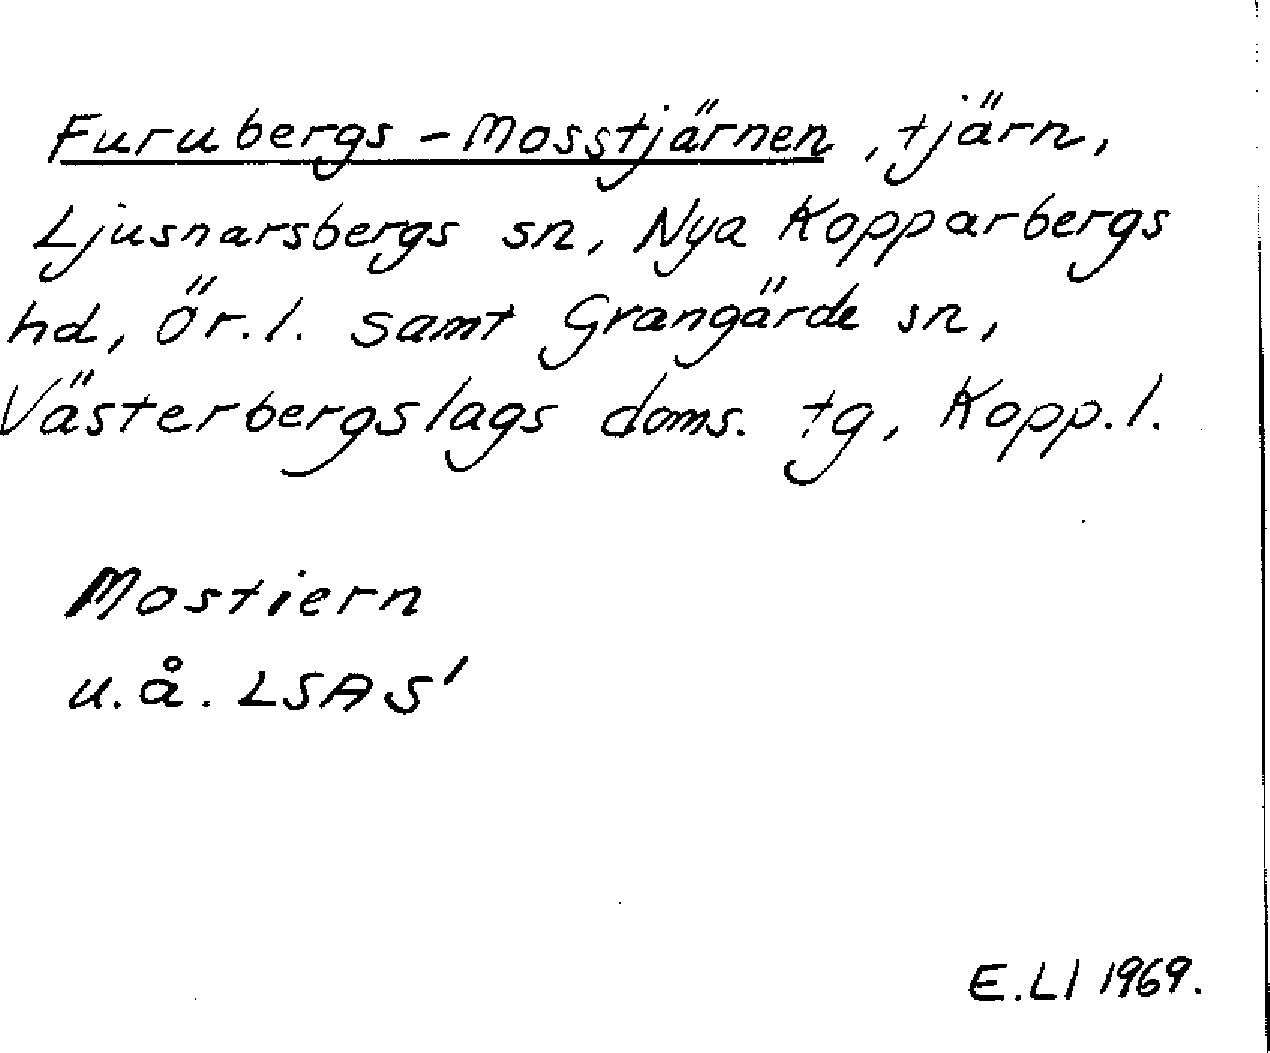 Furubergs-Mosstjärnen, tjärn,
Ljusnarsbergs sn, Nya Kopparbergs
hd, Ör.l. samt Grangärde sn,
Västerbergslags doms. tg, Kopp.l.
Mostiern
u.å. LSA S'
E.Ll 1969.